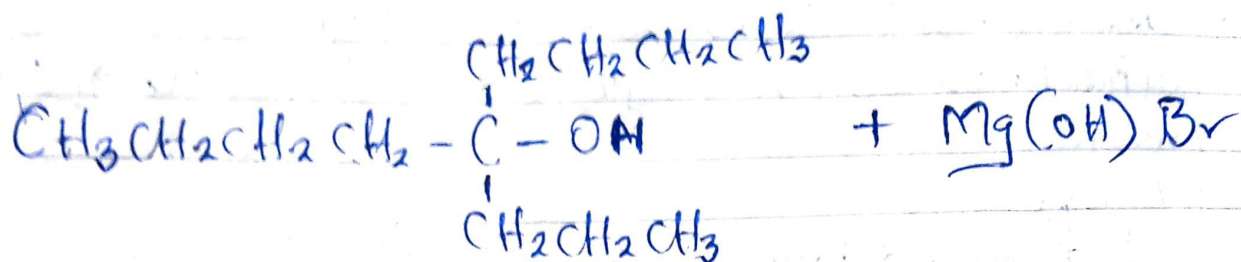 CH2CH2CH2CH3
CH3CH2CH2CH2-C-OH + Mg(OH)Br
CH2CH2CH3